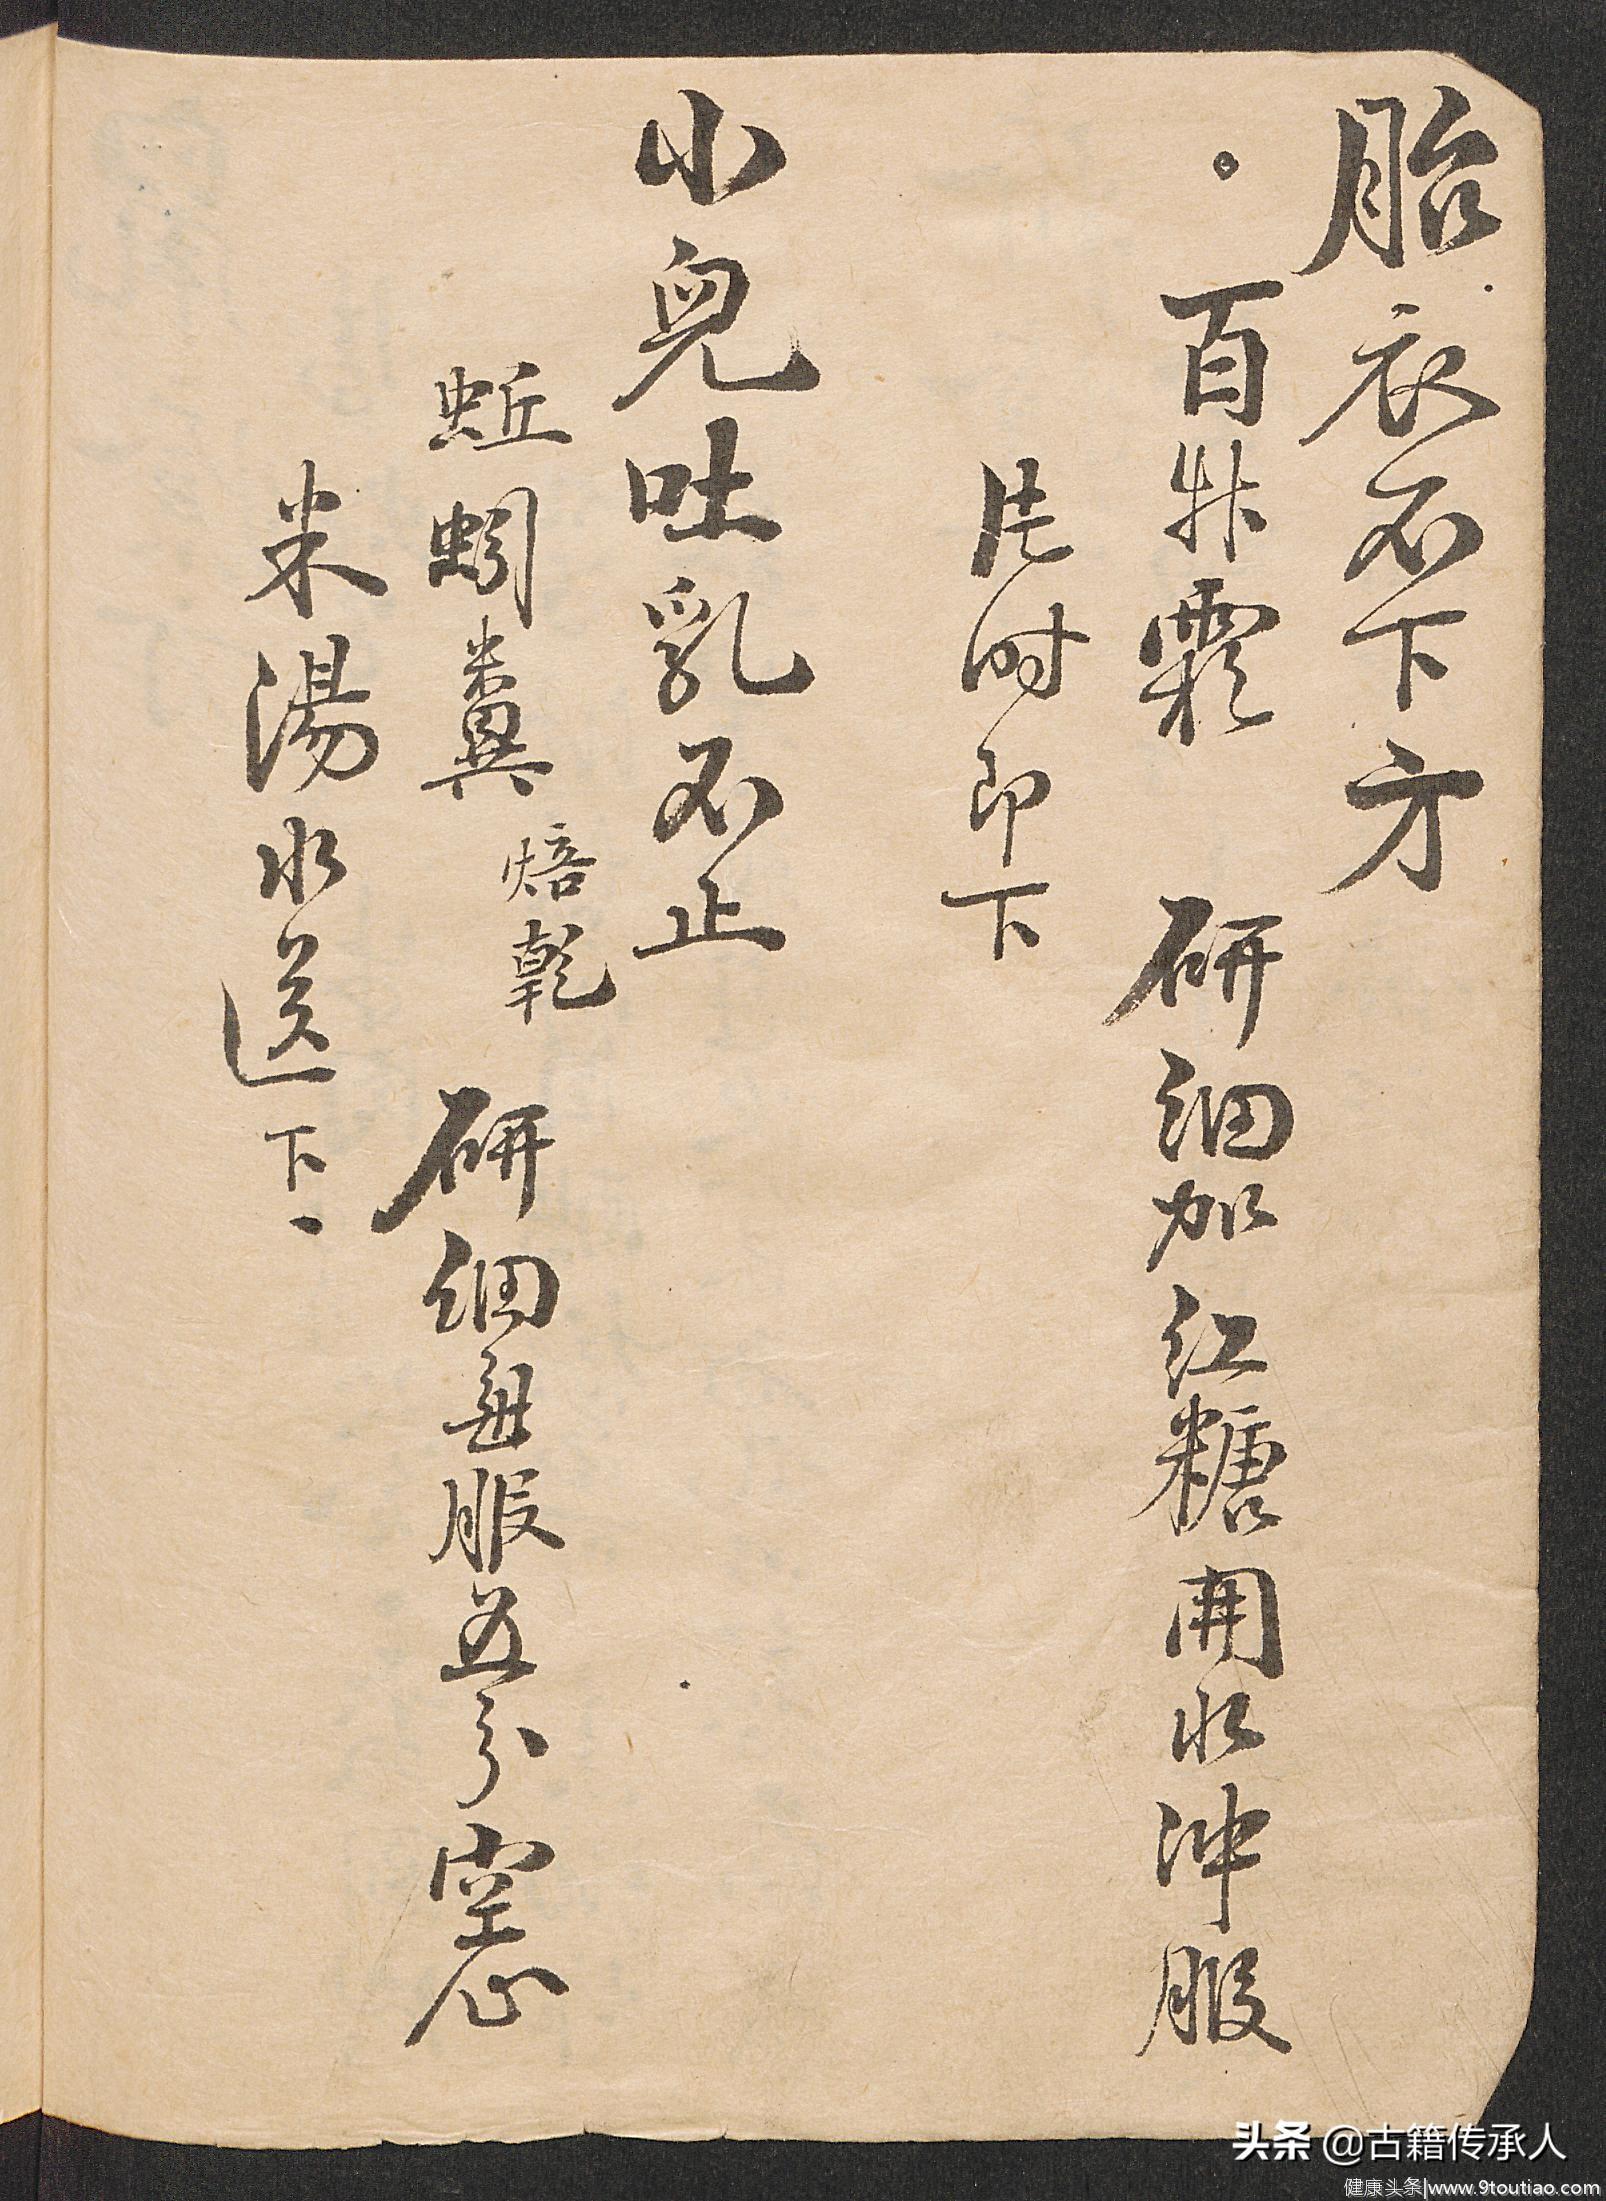 胎衣不下方
百艸霜 研細加紅糖開水沖服
片时即下
小兒吐乳不止
蚯蚓糞 焙乾 研細每服五分空心
米湯水送下
头条 @古籍传承人
健康头条|www.9toutiao.com